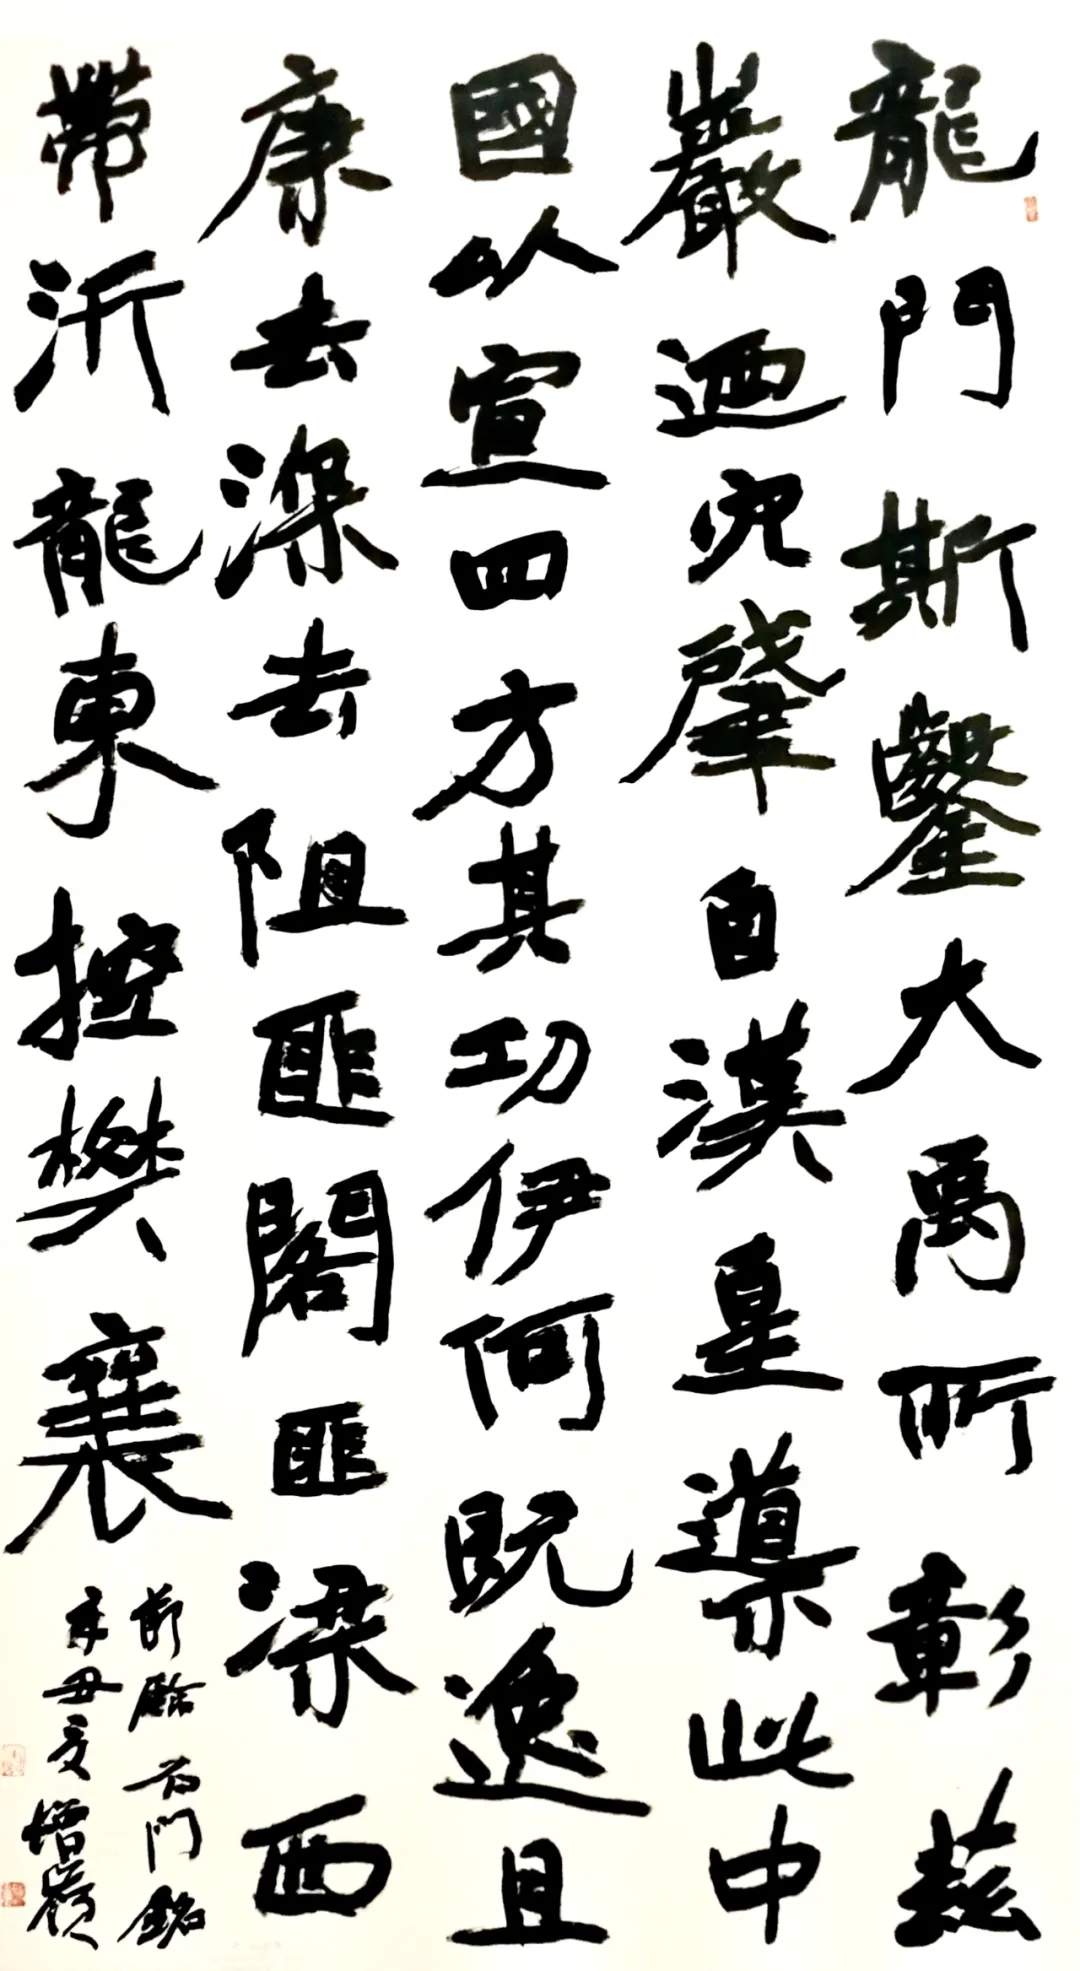 龍門斯鑿大禹所彰茲
巖迺穴肇自漢皇導此中
國以宣四方其功伊何既逸且
康去深去阻匪閣匪梁西
帶汧龍東控樊襄
節臨石門銘
辛丑夏增